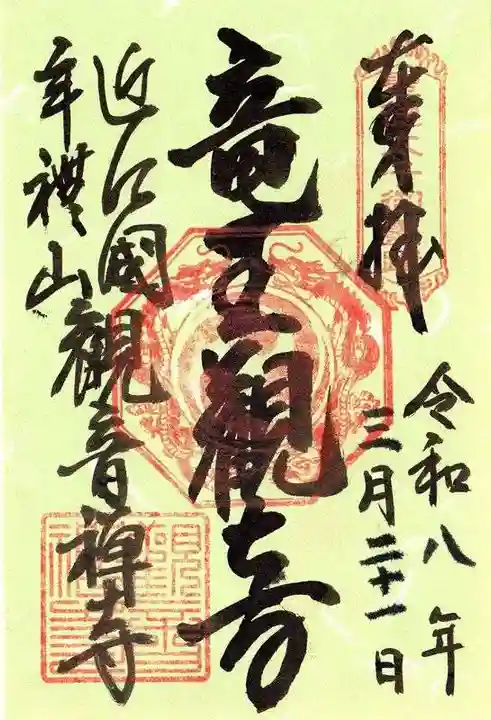 奉拝
令和八年
三月二十一日
竜王觀音
近江國觀音禪寺
山